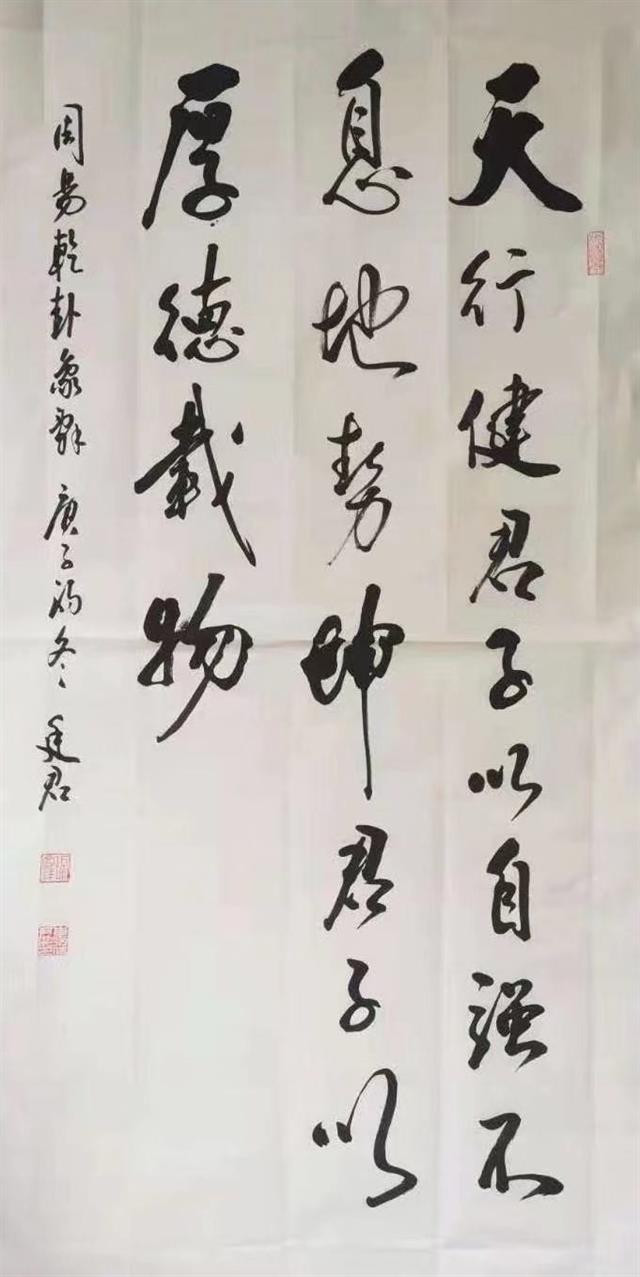 天行健君子以自强不
息地势坤君子以
厚德载物
周易乾卦象辞 庚子初冬 廷君